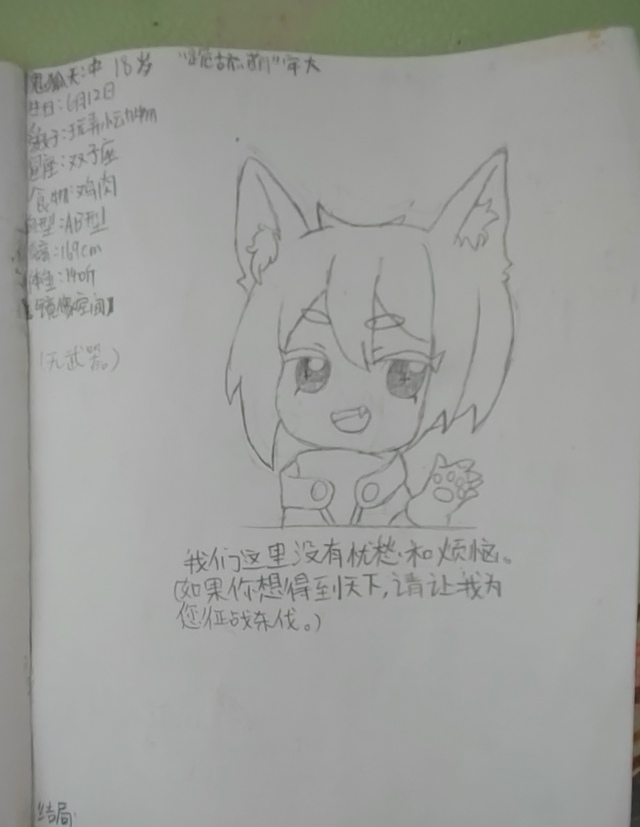 鬼狐天冲 18岁
生日:6月12日
:玩弄小动物
星座:双子座
食物:鸡肉
血型:AB型
身高:169cm
体重:140斤
【镜像空间】
(无武器。)
我们这里没有忧愁和烦恼。
(如果你想得到天下,请让我为
您征战东伐。)
结局